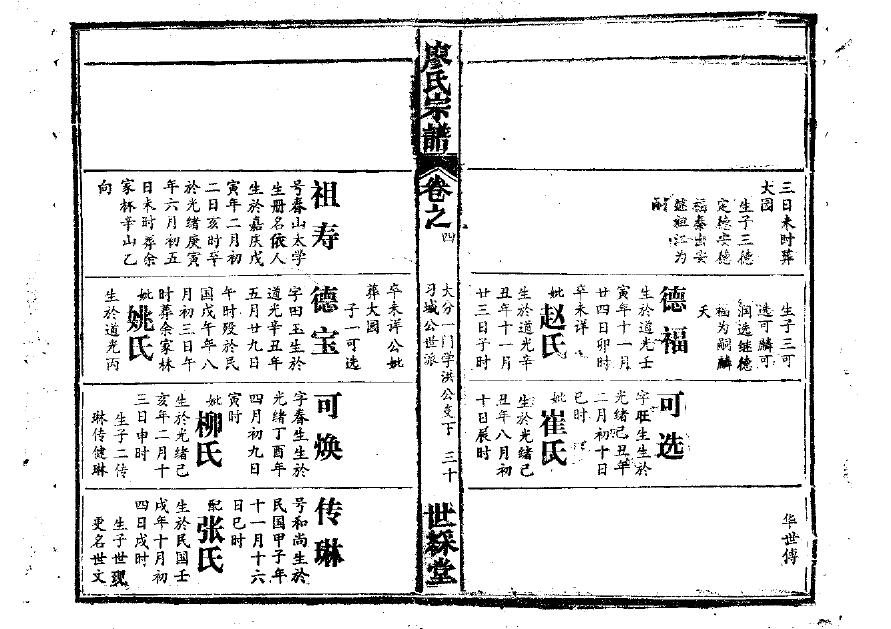 三日未时葬
大园
生子三德
定德安德
福秦出安
继祖江为
嗣
生子三可
选可麟可
润选继德
福为嗣麟
夭
德福
生於道光壬
寅年十一月
廿四日卯时
卒未详
妣赵氏
生於道光辛
丑年十一月
廿三日子时
可选
字旺生生於
光绪己丑年
二月初十日
巳时
妣崔氏
生於光绪己
丑年八月初
十日辰时
华世傅
廖氏宗譜
卷之四
大分一门学洪公支下 三十
习域公世派
世綵堂
祖寿
号春山太学
生册名依人
生於嘉庆戊
寅年二月初
二日亥时卒
於光绪庚寅
年六月初五
日未时葬余
家林辛山乙
向
卒未详公妣
葬大园
子一可选
德宝
字田玉生於
道光辛丑年
五月廿九日
午时殁於民
国戊午年八
月初三日午
时葬余家林
妣姚氏
生於道光丙
可焕
字春生生於
光绪丁酉年
四月初九日
寅时
妣柳氏
生於光绪己
亥年二月十
三日申时
生子二传
琳传健琳
传琳
号和尚生於
民国甲子年
十一月十六
日巳时
配张氏
生於民国壬
戌年十月初
四日戌时
生子世
更名世文